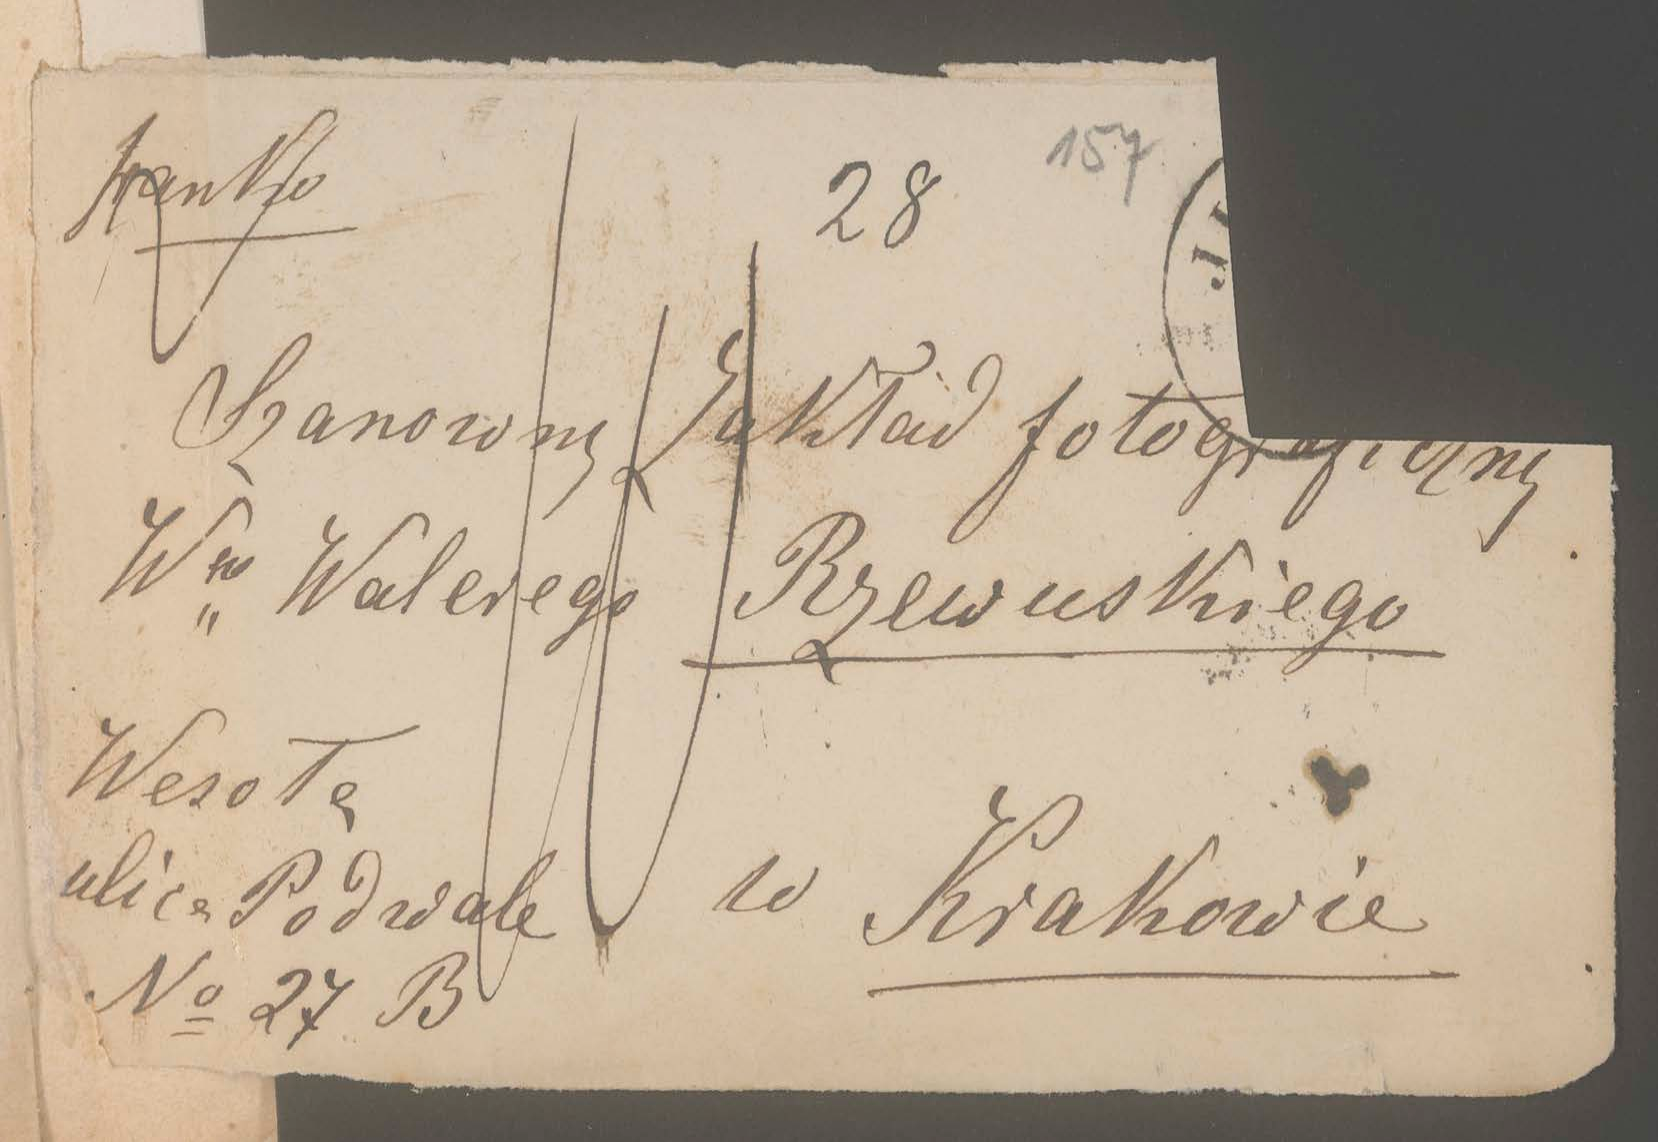 franko
28
157
Szanowny Zakład fotograficzny
Wgo Walerego Rzewuskiego
Wesołą
ulica Podwale
w Krakowie
No 27 B